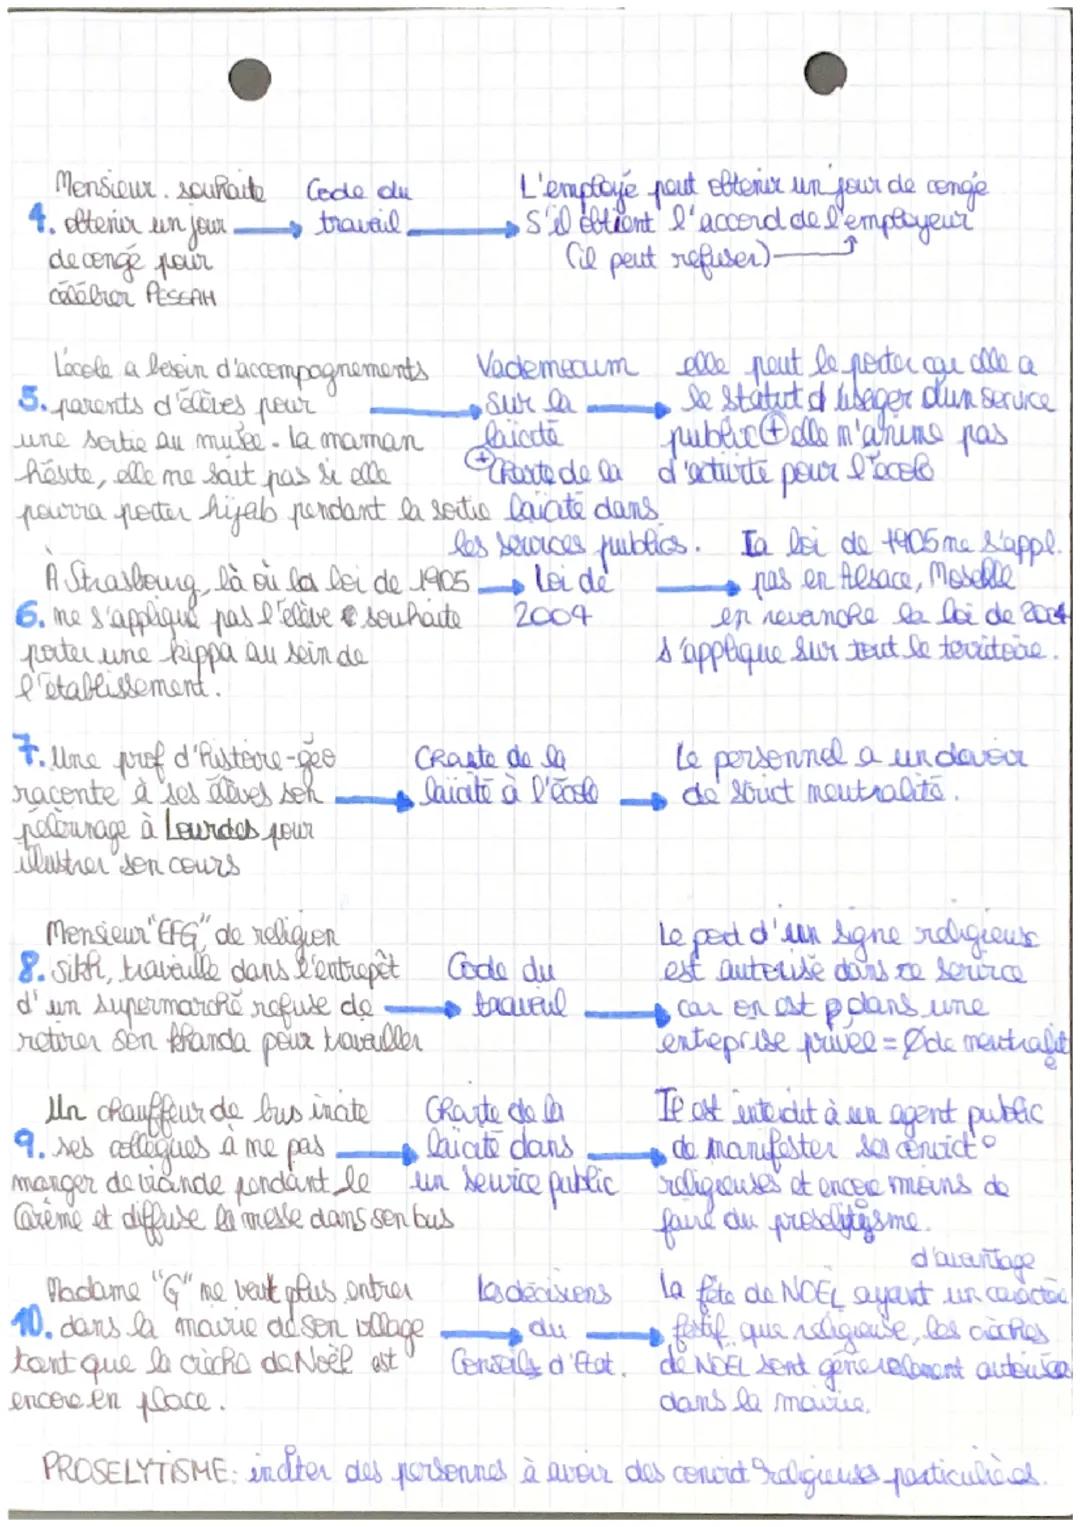 Monsieur. souhaite
4. obtenir un jour
de congé pour
célébrer PESSAH
Code du
travail
L'employé peut obtenir un jour de congé
S'il obtient l'accord de l'employeur
(il peut refuser)
L'école a besoin d'accompagnements
5. parents d'élèves pour
une sortie au musée. la maman
hésite, elle ne sait pas si elle
pourra porter hijab pendant la sortie
Vademecum
sur la
laïcité
+ Charte de la
laïcité dans
les services publics.
elle peut le porter car elle a
le statut d'usager d'un service
public + elle n'anime pas
d'activité pour l'école
À Strasbourg, là où la loi de 1905
6. ne s'applique pas l'élève souhaite
porter une kippa au sein de
l'établissement.
Loi de
2004
La loi de 1905 ne s'appl.
pas en Alsace, Moselle
en revanche la loi de 2004
s'applique sur tout le territoire.
7. Une prof d'histoire-géo
raconte à ses élèves son
pélerinage à Lourdes pour
illustrer son cours
Charte de la
laïcité à l'école
Le personnel a un devoir
de strict neutralité.
Monsieur "EFG" de religion
8. sikh, travaille dans l'entrepôt
d'un supermarché refuse de
retirer son khanda pour travailler
Code du
travail
Le port d'un signe religieux
est autorisé dans ce service
car on est dans une
entreprise privée = Ø de neutralité
Un chauffeur de bus incite
9. ses collègues à ne pas
manger de viande pendant le
Carême et diffuse la messe dans son bus
Charte de la
laïcité dans
un service public
Il est interdit à un agent public
de manifester ses convict°
religieuses et encore moins de
faire du prosélytisme.
Madame "G" ne veut plus entrer
10. dans la mairie de son village
tant que la crèche de Noël est
encore en place.
Les décisions
du
Conseils d'Etat.
d'avantage
La fête de NOËL ayant un caractère
festif que religieuse, les crèches
de NOËL sont généralement autorisée
dans la mairie.
PROSELYTISME: inciter des personnes à avoir des convict° religieuses particulières.